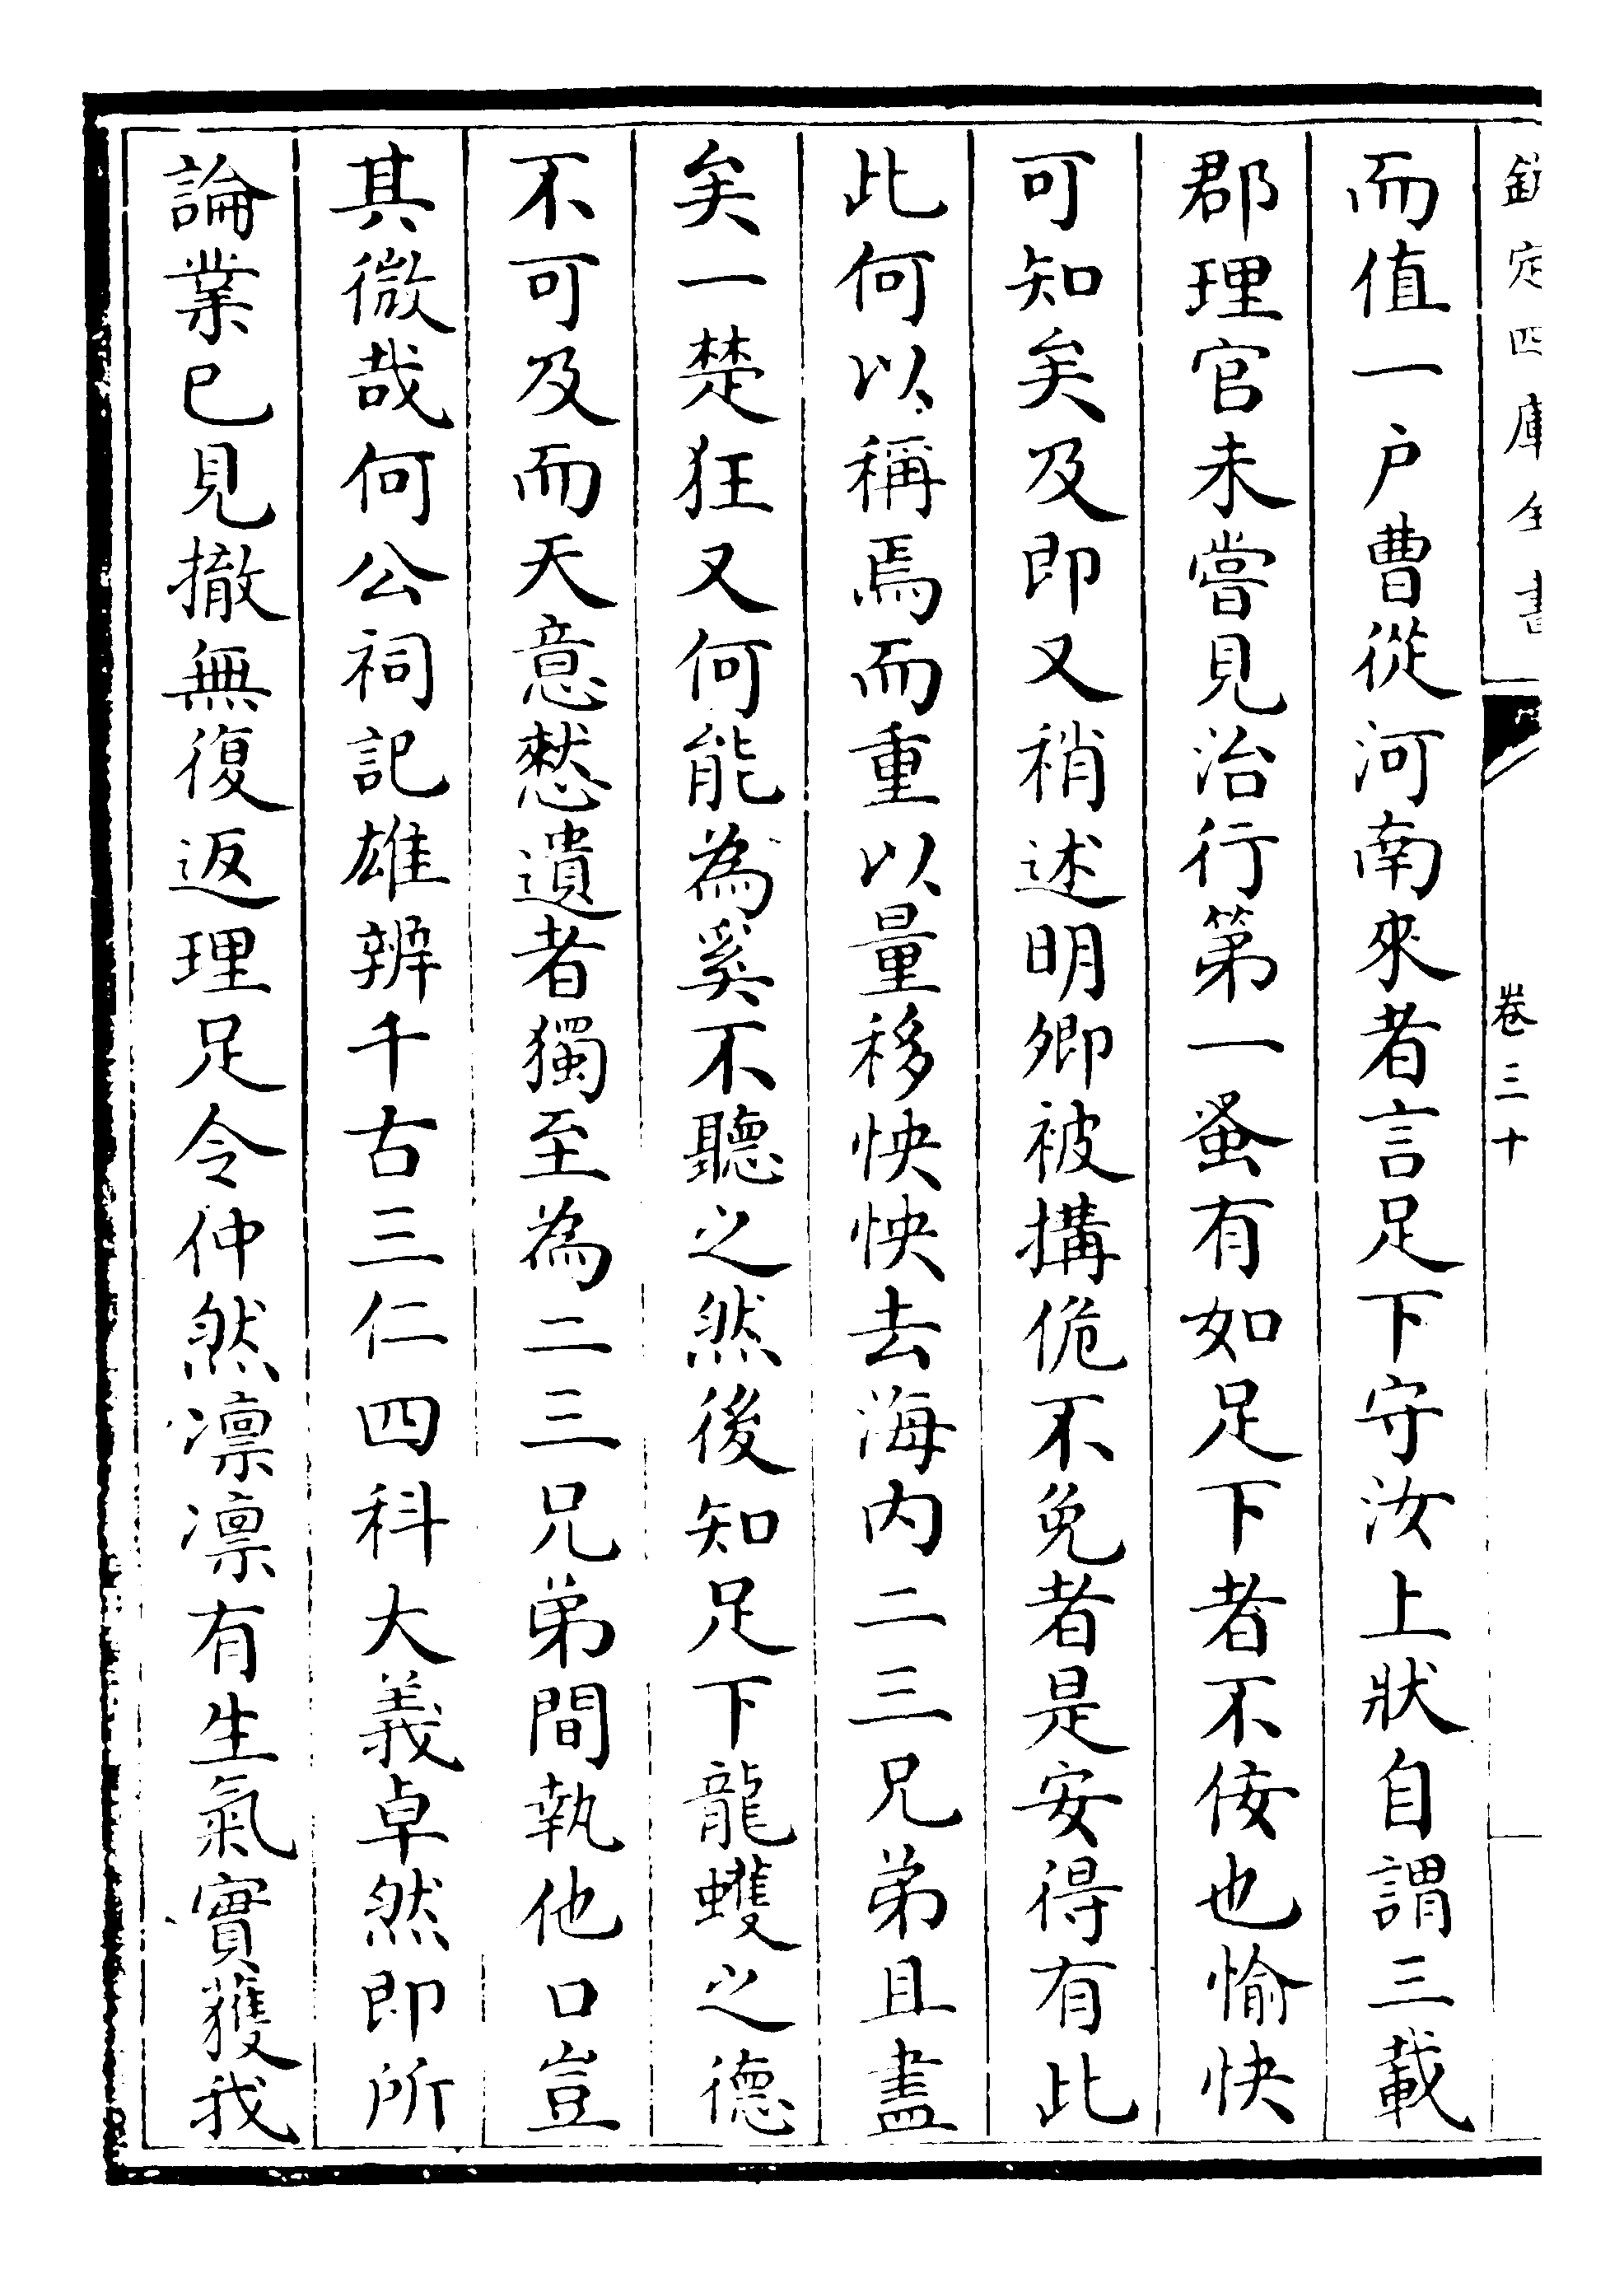 欽定四庫全書
卷三十
而值一户曹從河南來者言足下守汝上狀自謂三載
郡理官未嘗見治行第一蚤有如足下者不佞也愉快
可知矣及即又稍述明卿被搆佹不免者是安得有此
此何以稱焉而重以量移怏怏去海内二三兄弟且盡
矣一楚狂又何能為奚不聽之然後知足下龍蠖之德
不可及而天意憖遺者獨至為二三兄弟間執他口豈
其微哉何公祠記雄辨千古三仁四科大義卓然即所
論業已見撤無復返理足令仲然凛凛有生氣實獲我